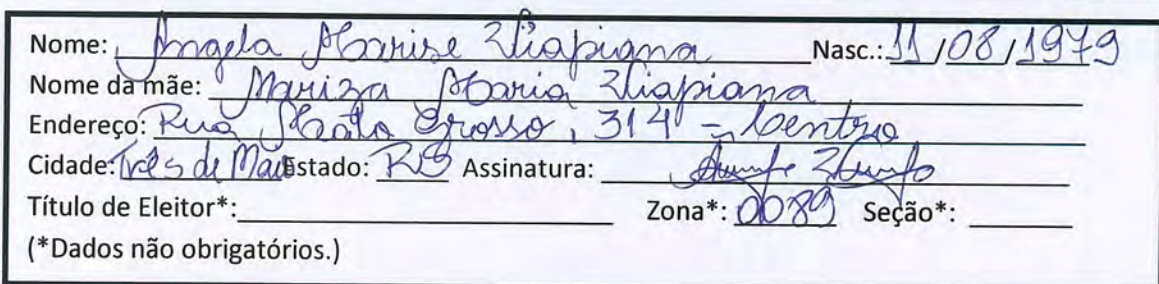 Nome: Angela Marise Viapiana Nasc.: 11/08/1979
Nome da mãe: Mariza Maria Viapiana
Endereço: Rua Mato Grosso, 314 - Centro
Cidade: Três de Maio Estado: RS Assinatura:
Título de Eleitor*: Zona*: 0089 Seção*:
(*Dados não obrigatórios.)